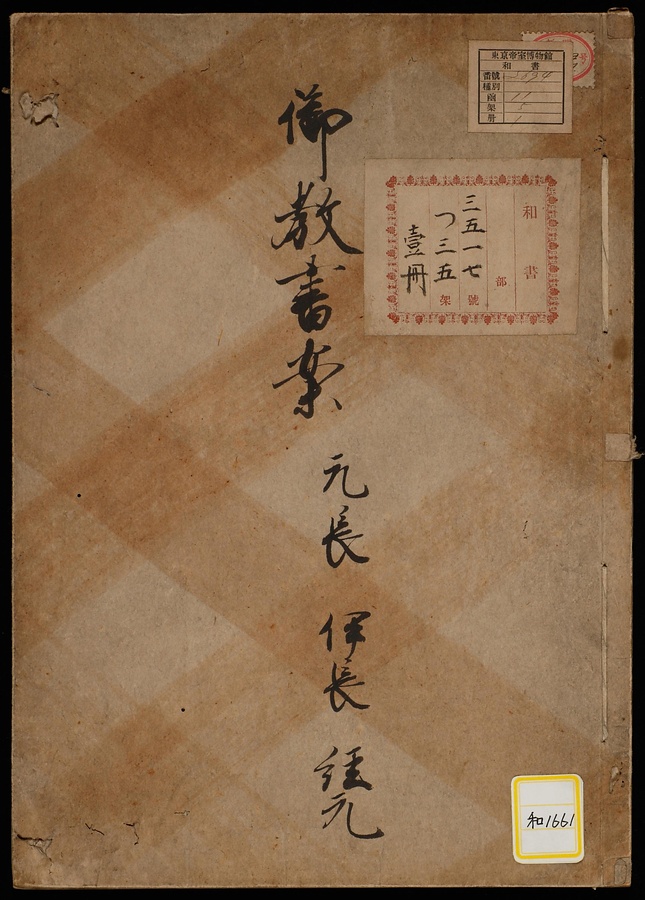 御教書案
元長
伊長
経元
東京帝室博物館
和書
番號
種別
函
架
冊
和書
部
三五一七號
つ三五架
壹冊
和1661